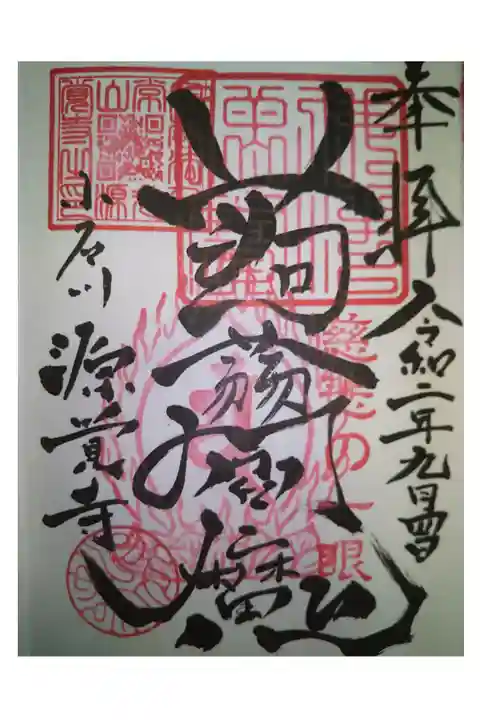 奉拝
令和二年九月四日
蒟蒻閻魔
慈悲の一眼
小石川
源覚寺